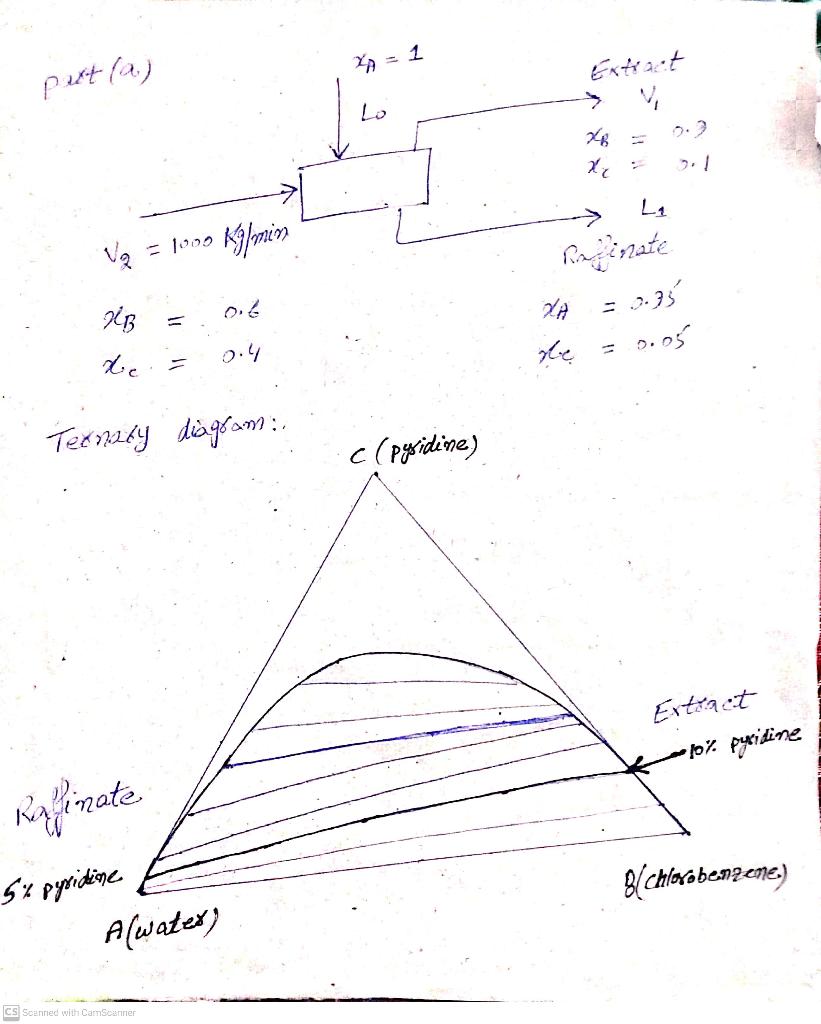 part (a)
xA = 1
L0
Extract
V1
xB = 0.9
xC = 0.1
V2 = 1000 Kg/min
L1
Raffinate
xB = 0.6
xC = 0.4
xA = 0.95
xC = 0.05
Ternary diagram:
C (pyridine)
Extract
10% pyridine
Raffinate
5% pyridine
A(water)
B(chlorobenzene)
CS Scanned with CamScanner